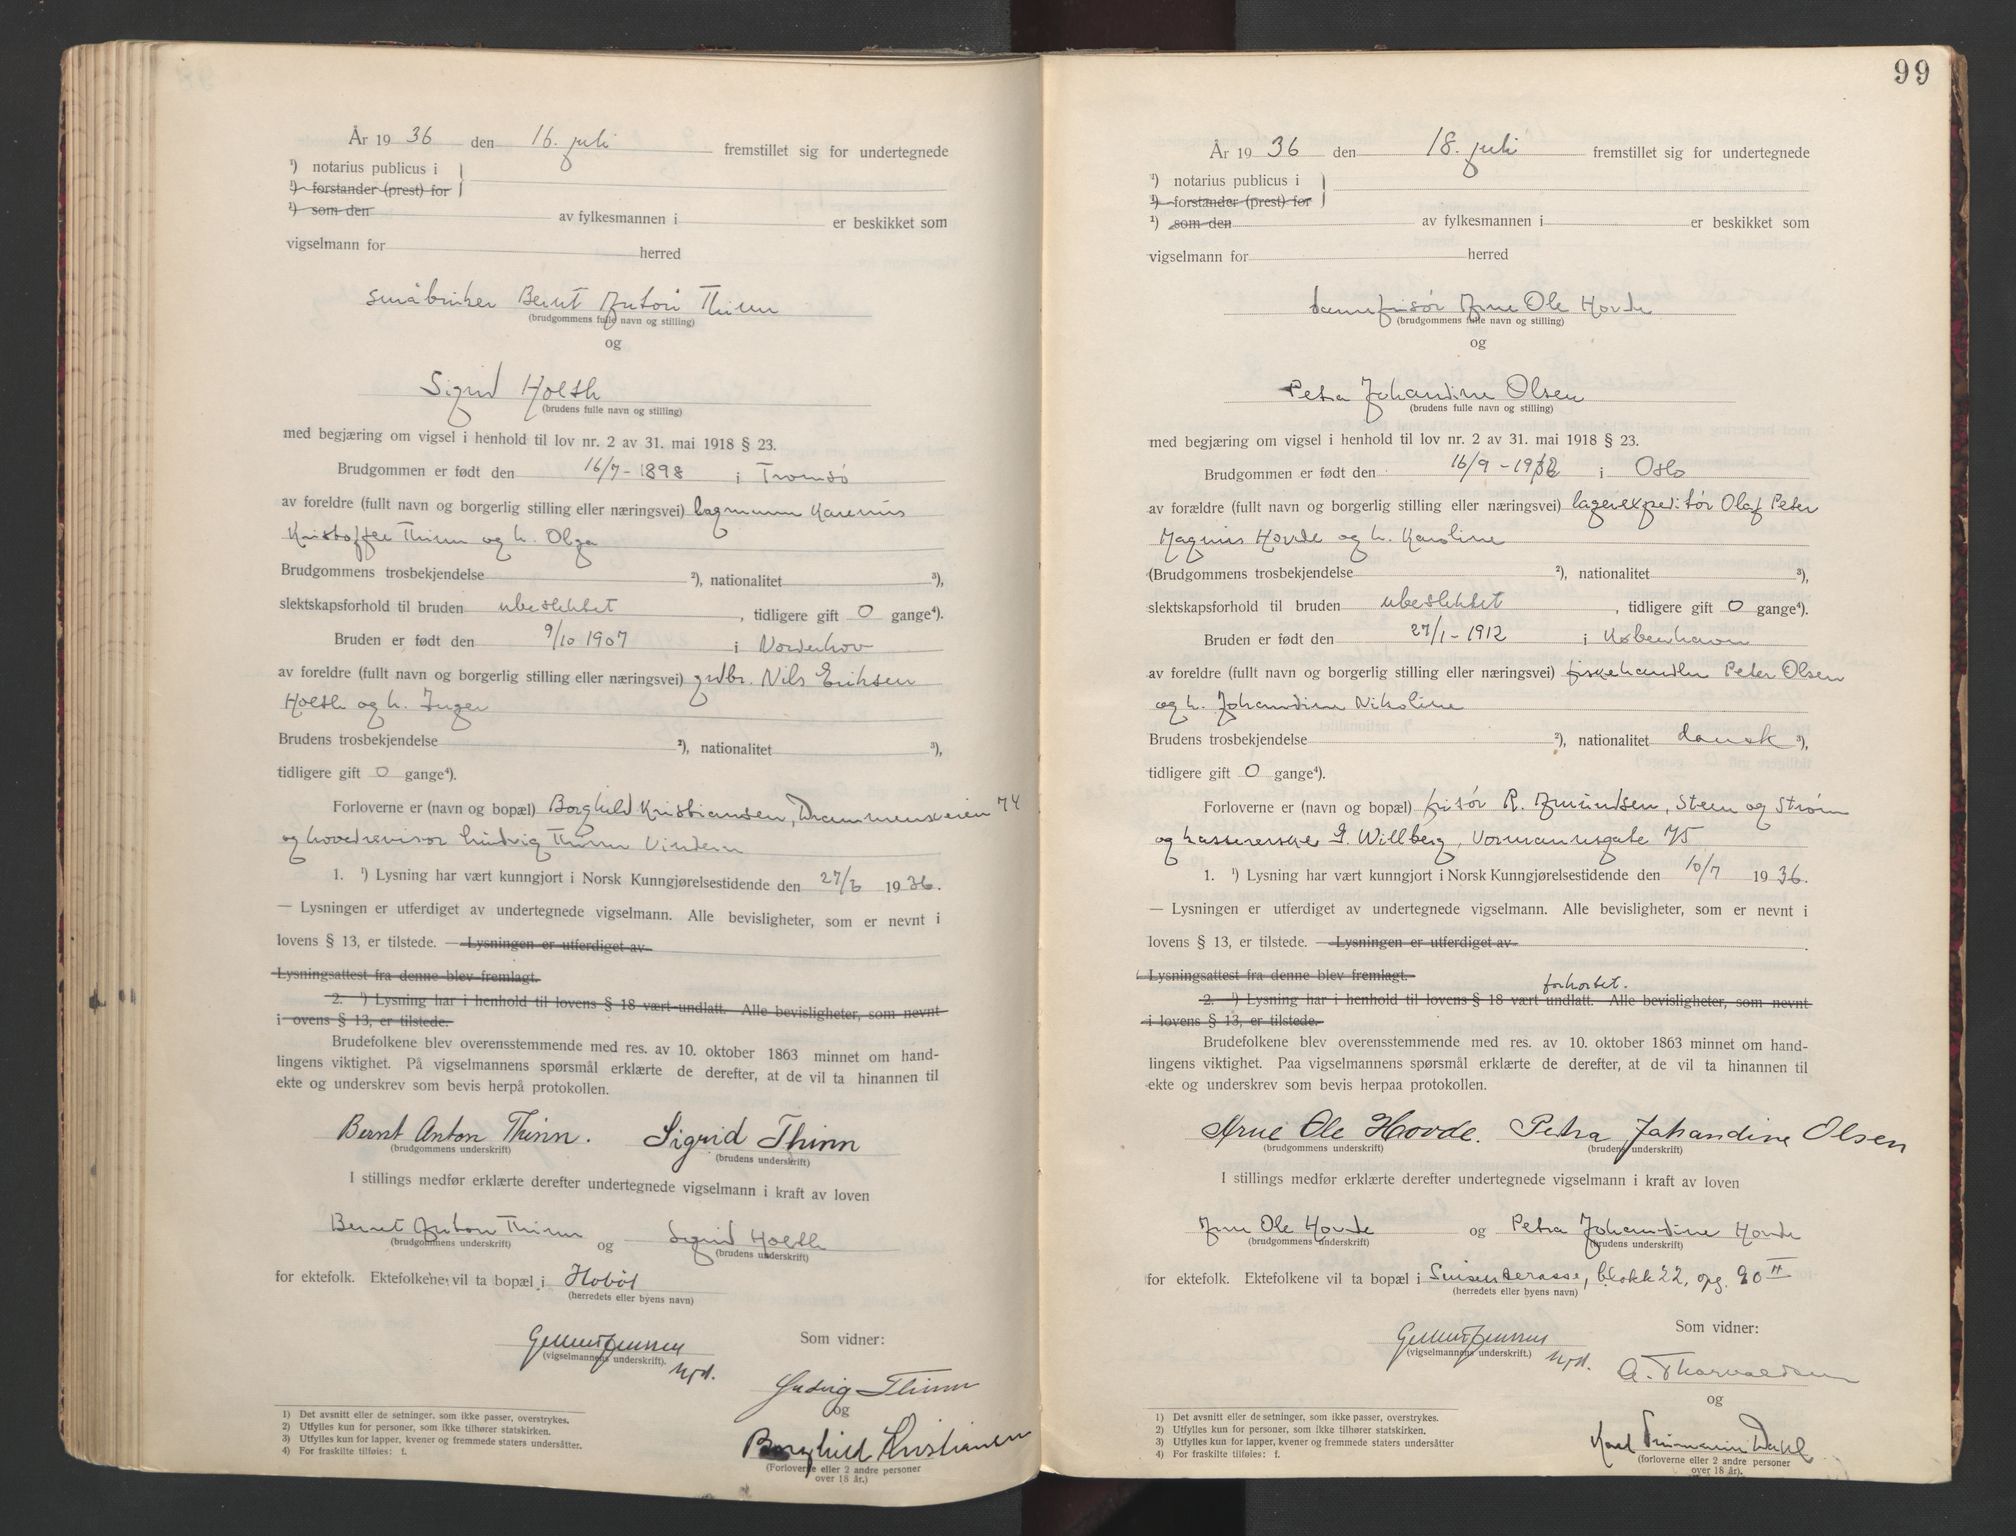 År 19 36 den 16. juli fremstillet sig for undertegnede
¹) notarius publicus i
¹) forstander (prest) for
¹) som den av fylkesmannen i er beskikket som
vigselmann for herred
småbruker Bernt Anton Thinn
(brudgommens fulle navn og stilling)
og
Sigrid Holth
(brudens fulle navn og stilling)
med begjæring om vigsel i henhold til lov nr. 2 av 31. mai 1918 § 23.
Brudgommen er født den 16/7 - 1898 i Tromsö
av foreldre (fullt navn og borgerlig stilling eller næringsvei) lagmann Karenus
Kristoffer Thinn og h. Olga
Brudgommens trosbekjendelse ²), nationalitet ³),
slektskapsforhold til bruden ubeslektet, tidligere gift 0 gange⁴).
Bruden er født den 9/10 1907 i Norderhov
av foreldre (fullt navn og borgerlig stilling eller næringsvei) grdbr. Nils Eriksen
Holth og h. Inger
Brudens trosbekjendelse ²), nationalitet ³),
tidligere gift 0 gange⁴).
Forloverne er (navn og bopæl) Borghild Kristiansen, Drammensveien 74
og hovedrevisor Ludvig Thinn Vindern
1. ¹) Lysning har vært kunngjort i Norsk Kunngjørelsestidende den 27/6 1936.
— Lysningen er utferdiget av undertegnede vigselmann. Alle bevisligheter, som er nevnt i
lovens § 13, er tilstede. — Lysningen er utferdiget av
Lysningsattest fra denne blev fremlagt.
2. ¹) Lysning har i henhold til lovens § 18 vært undlatt. Alle bevisligheter, som nevnt
i ovens § 13, er tilstede.
Brudefolkene blev overensstemmende med res. av 10. oktober 1863 minnet om hand-
lingens viktighet. På vigselmannens spørsmål erklærte de derefter, at de vil ta hinannen til
ekte og underskrev som bevis herpå protokollen.
Bernt Anton Thinn. Sigrid Thinn
(brudgommens underskrift) (brudens underskrift)
I stillings medfør erklærte derefter undertegnede vigselmann i kraft av loven
Bernt Anton Thinn og Sigrid Holth
(brudgommens underskrift) (brudens underskrift)
for ektefolk. Ektefolkene vil ta bopæl i Hobøl
(herredets eller byens navn)
Som vidner:
(vigselmannens underskrift).
Ludvig Thinn
og
Borghild Kristiansen
(Forloverne eller 2 andre personer
over 18 år.)
1) Det avsnitt eller de setninger, som ikke passer, overstrykes.
2) Utfylles kun for personer, som ikke tilhører statskirken.
3) Utfylles kun for lapper, kvener og fremmede staters undersåtter.
4) For fraskilte tilføies: f.
99
År 19 36 den 18. juli fremstillet sig for undertegnede
¹) notarius publicus i
¹) forstander (prest) for
¹) som den av fylkesmannen i er beskikket som
vigselmann for herred
damefrisør Arne Ole Hovde
(brudgommens fulle navn og stilling)
og
Petra Johandine Olsen
(brudens fulle navn og stilling)
med begjæring om vigsel i henhold til lov nr. 2 av 31. mai 1918 § 23.
Brudgommen er født den 16/9 - i Oslo
av forældre (fullt navn og borgerlig stilling eller næringsvei) lagerexpeditør Olaf Peter
Magnus Hovde og h. Karoline
(Brudgommens trosbekjendelse ²), nationalitet ³),
slektskapsforhold til bruden ubeslektet, tidligere gift 0 gange⁴).
Bruden er født den 27/1 - 1912 i København
av foreldre (fullt navn og borgerlig stilling eller næringsvei) fiskehandler Peter Olsen
og h. Johandine Nikoline
Brudens trosbekjendelse ²), nationalitet dansk ³),
tidligere gift 0 gange⁴).
Forloverne er (navn og bopæl) frisør R. Amundsen, Steen og Strøm
og kassererske G. Willberg, Vormannsgate 75
1. ¹) Lysning har vært kunngjort i Norsk Kunngjørelsestidende den 10/7 1936.
— Lysningen er utferdiget av undertegnede vigselmann. Alle bevisligheter, som er nevnt i
lovens § 13, er tilstede. — Lysningen er utferdiget av
Lysningsattest fra denne blev fremlagt.
forkortet.
2. ¹) Lysning har i henhold til lovens § 18 vært undlatt. Alle bevisligheter, som nevnt
i lovens § 13, er tilstede.
Brudefolkene blev overensstemmende med res. av 10. oktober 1863 minnet om hand-
lingens viktighet. Paa vigselmannens spørsmål erklærte de derefter, at de vil ta hinannen til
ekte og underskrev som bevis herpaa protokollen.
Arne Ole Hovde. Petra Johandine Olsen
(brudgommens underskrift) (brudens underskrift)
I stillings medfør erklærte derefter undertegnede vigselmann i kraft av loven
Arne Ole Hovde og Petra Johandine Hovde
(brudgommens underskrift) (brudens underskrift)
for ektefolk. Ektefolkene vil ta bopæl i Sinsenterasse, blokk 22, opg. 20 II
(herredets eller byens navn)
Som vidner:
(vigselmannens underskrift.)
A. Thorvaldsen
og
Dahl
(forloverne eller 2 andre personer
over 18 år).
1) Det avsnitt eller de setninger, som ikke passer, overstrykes.
2) Utfylles kun for personer, som ikke tilhører statskirken.
3) Utfylles kun for lapper, kvener og fremmede staters undersåtter
4) For fraskilte tilføies: f.